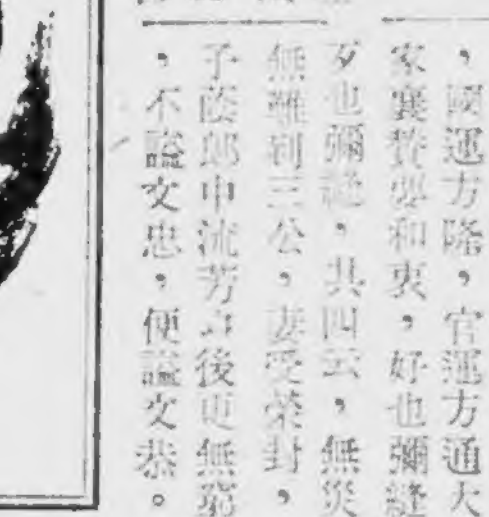 ，國運方隆，官運方通大
家襄贊要和衷，好也彌縫
歹也彌縫，其四云，無災
無難到三公，妻受榮封，
子蔭郎中流芳身後更無窮
，不諡文忠，便諡文恭。